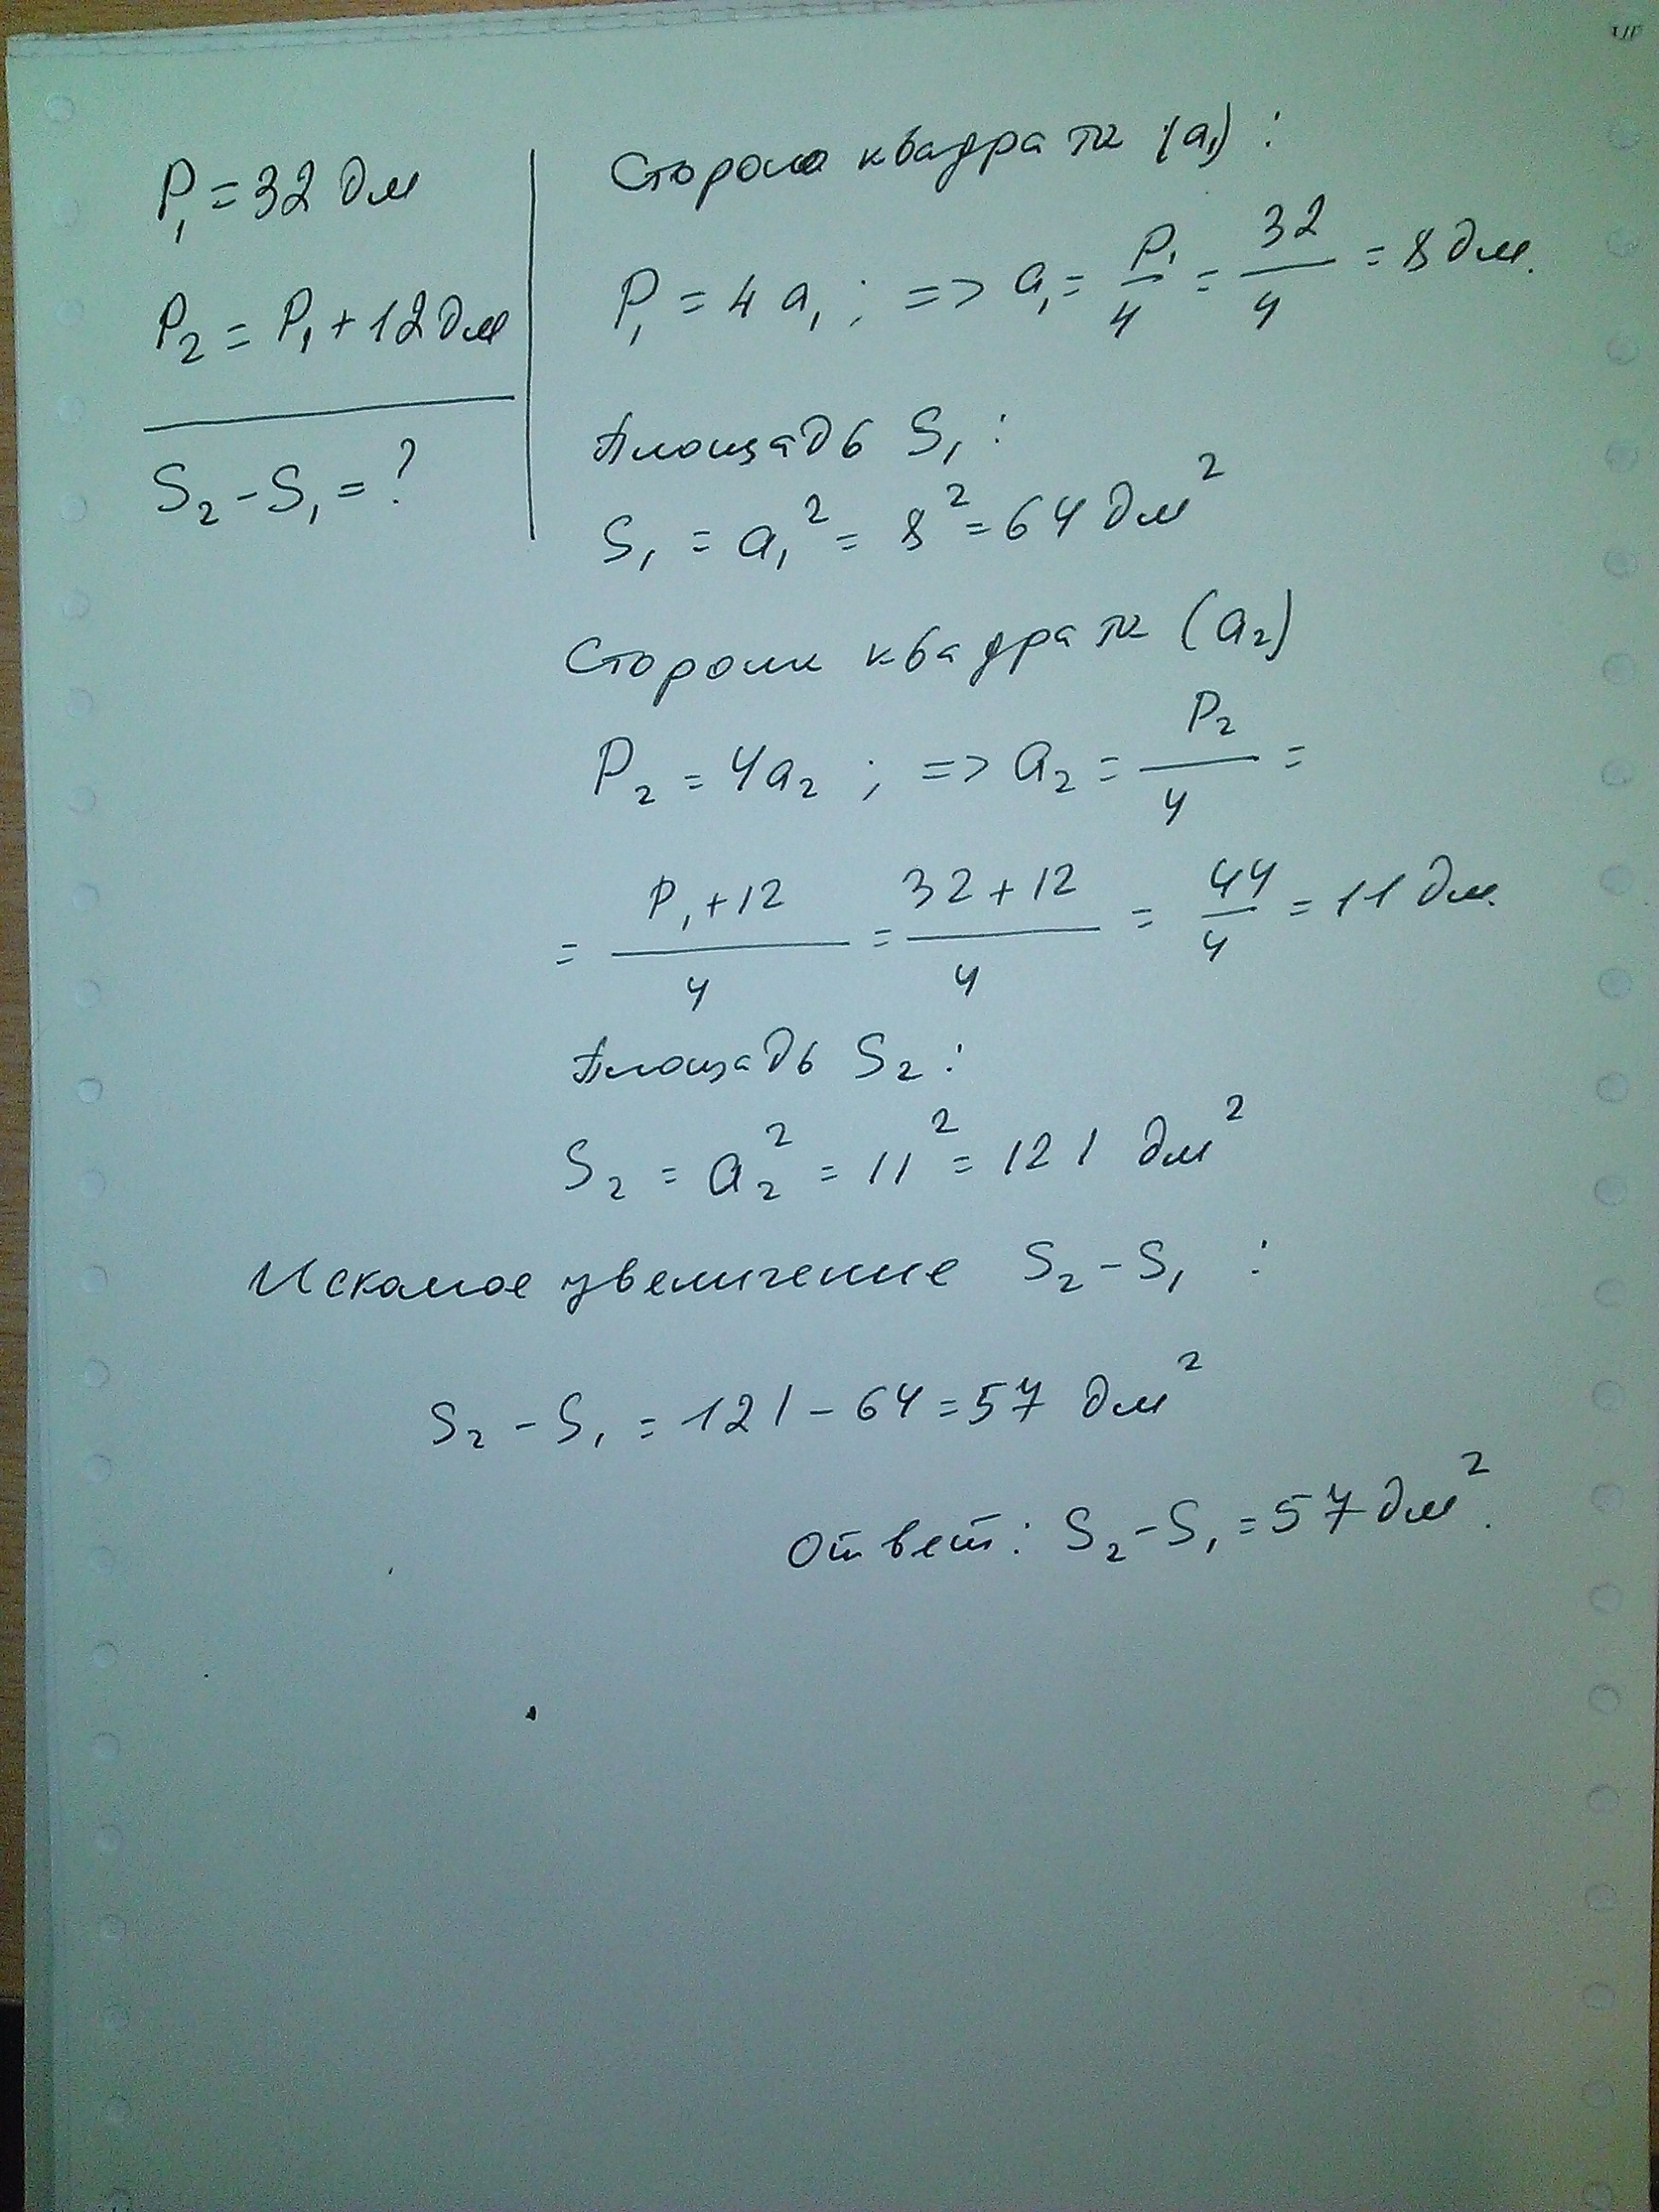 P₁ = 32 дм
P₂ = P₁ + 12 дм
S₂ - S₁ = ?
Сторона квадрата (a₁) :
P₁ = 4 a₁ ; => a₁ = P₁/4 = 32/4 = 8 дм.
Площадь S₁ :
S₁ = a₁² = 8² = 64 дм²
Сторона квадрата (a₂)
P₂ = 4a₂ ; => a₂ = P₂/4 =
= P₁+12/4 = 32+12/4 = 44/4 = 11 дм.
Площадь S₂ :
S₂ = a₂² = 11² = 121 дм²
Искомое увеличение S₂ - S₁ :
S₂ - S₁ = 121 - 64 = 57 дм²
Ответ: S₂ - S₁ = 57 дм².